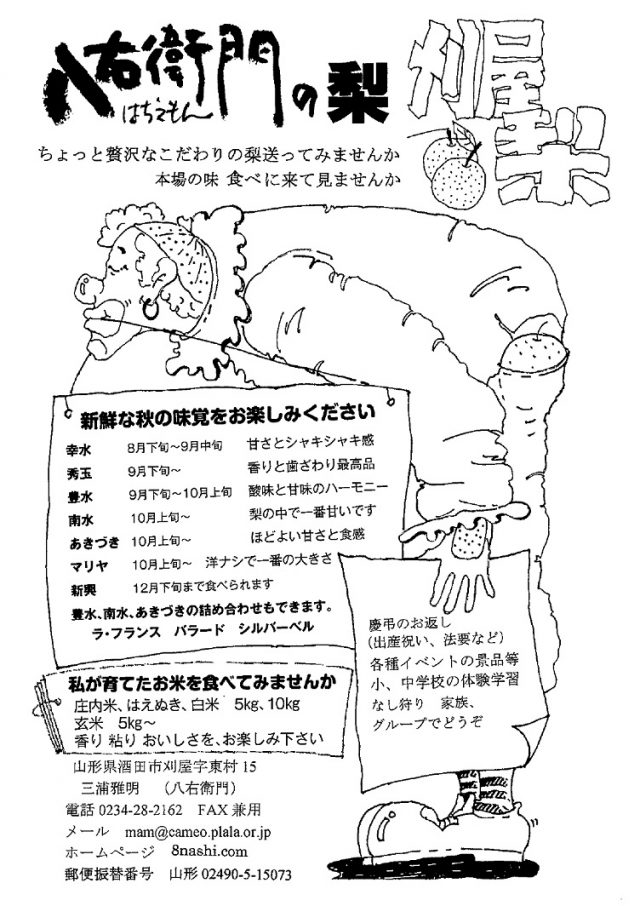 八右衛門の梨
はちえもん
刈屋梨
ちょっと贅沢なこだわりの梨送ってみませんか
本場の味 食べに来て見ませんか
新鮮な秋の味覚をお楽しみください
幸水 8月下旬～9月中旬 甘さとシャキシャキ感
秀玉 9月下旬～ 香りと歯ざわり最高品
豊水 9月下旬～10月上旬 酸味と甘味のハーモニー
南水 10月上旬～ 梨の中で一番甘いです
あきづき 10月上旬～ ほどよい甘さと食感
マリヤ 10月上旬～ 洋ナシで一番の大きさ
新興 12月下旬まで食べられます
豊水、南水、あきづきの詰め合わせもできます。
ラ・フランス バラード シルバーベル
慶弔のお返し
（出産祝い、法要など）
各種イベントの景品等
小、中学校の体験学習
なし狩り 家族、
グループでどうぞ
私が育てたお米を食べてみませんか
庄内米、はえぬき、白米 5kg、10kg
玄米 5kg～
香り 粘り おいしさを、お楽しみ下さい
山形県酒田市刈屋字東村15
三浦雅明 （八右衛門）
電話 0234-28-2162 FAX 兼用
メール mam@cameo.plala.or.jp
ホームページ 8nashi.com
郵便振替番号 山形 02490-5-15073